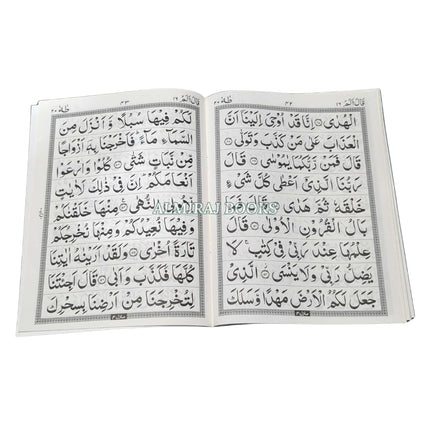 قَالَ اَلَمْ ١٦ ٣٢ طٰهٰ ٢٠
الْهُدٰى ۝ اِنَّا قَدْ اُوْحِیَ اِلَیْنَاۤ اَنَّ
الْعَذَابَ عَلٰى مَنْ كَذَّبَ وَتَوَلّٰى ۝
قَالَ فَمَنْ رَّبُّكُمَا یٰمُوْسٰى ۝ قَالَ
رَبُّنَا الَّذِیْۤ اَعْطٰى كُلَّ شَیْءٍ
خَلْقَهٗ ثُمَّ هَدٰى ۝ قَالَ فَمَا
بَالُ الْقُرُوْنِ الْاُوْلٰى ۝ قَالَ
عِلْمُهَا عِنْدَ رَبِّیْ فِیْ كِتٰبٍ ۚ لَا
یَضِلُّ رَبِّیْ وَلَا یَنْسَى ۝ الَّذِیْ
جَعَلَ لَكُمُ الْاَرْضَ مَهْدًا وَّسَلَكَ
قَالَ اَلَمْ ١٦ ٣٣ طٰهٰ ٢٠
لَكُمْ فِیْهَا سُبُلًا وَّ اَنْزَلَ مِنَ
السَّمَآءِ مَآءً ؕ فَاَخْرَجْنَا بِهٖۤ اَزْوَاجًا
مِّنْ نَّبَاتٍ شَتّٰى ۝ كُلُوْا وَارْعَوْا
اَنْعَامَكُمْ ؕ اِنَّ فِیْ ذٰلِكَ لَاٰیٰتٍ
لِّاُولِی النُّهٰى ۝ مِنْهَا خَلَقْنٰكُمْ
وَ فِیْهَا نُعِیْدُكُمْ وَ مِنْهَا نُخْرِجُكُمْ
تَارَةً اُخْرٰى ۝ وَلَقَدْ اَرَیْنٰهُ اٰیٰتِنَا
كُلَّهَا فَكَذَّبَ وَ اَبٰى ۝ قَالَ اَجِئْتَنَا
لِتُخْرِجَنَا مِنْ اَرْضِنَا بِسِحْرِكَ
ALMIRAJ BOOKS